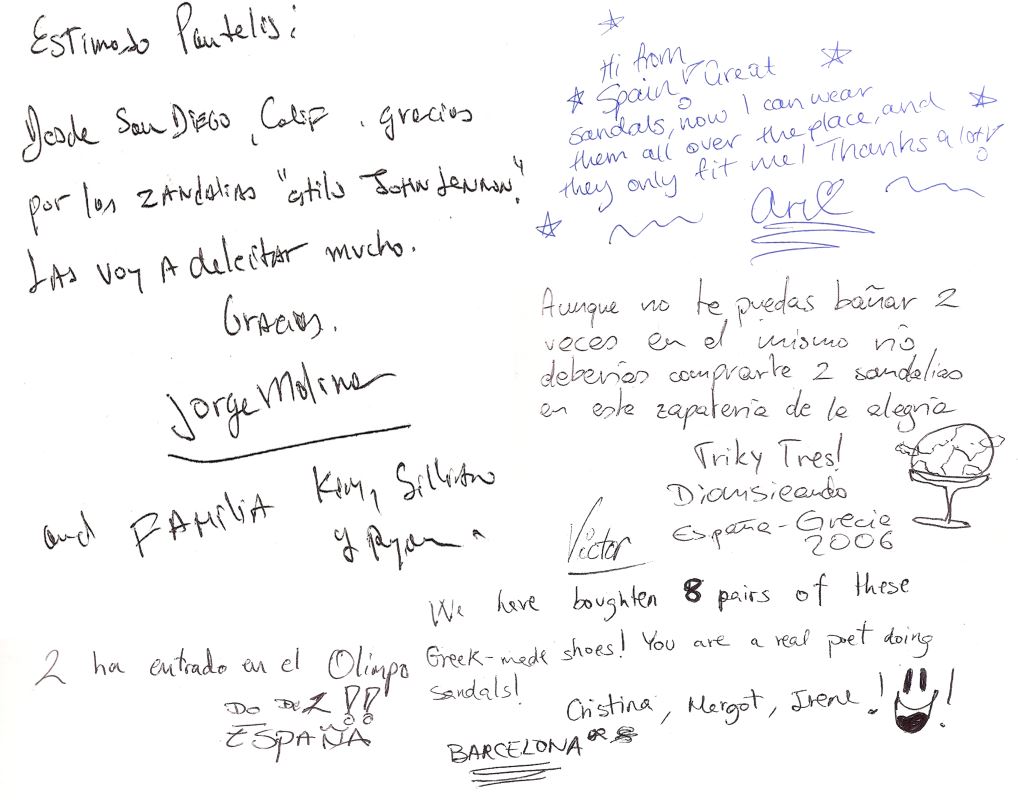 Estimado Pantelis:
Desde San DIEGO, Calif. gracias
por las ZANDALIAS "estilo JOHN LENNON".
LAS VOY A deleitar mucho.
Gracias.
Jorge Molina
and FAMILIA Kim,
y Ryan
Hi from
Spain! Great
sandals, now I can wear
them all over the place, and
they only fit me! Thanks a lot!
Ari
Aunque no te puedas bañar 2
veces en el mismo río,
deberías comprarte 2 sandalias
en esta zapatería de la alegría
Triky Tres!
España-Grecia
2006
Victor
We have boughten 8 pairs of these
Greek-made shoes! You are a real poet doing
sandals!
Cristina, Margot, Irene!!
BARCELONA
2 ha entrado en el Olimpo
DO DE 2!!
ESPAÑA